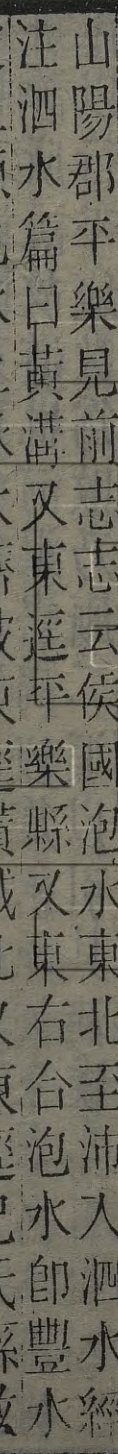 山陽郡平樂見前志志云侯國泡水東北至沛入泗水經
注泗水篇曰黃溝又東逕平樂縣又東右合泡水卽豐水